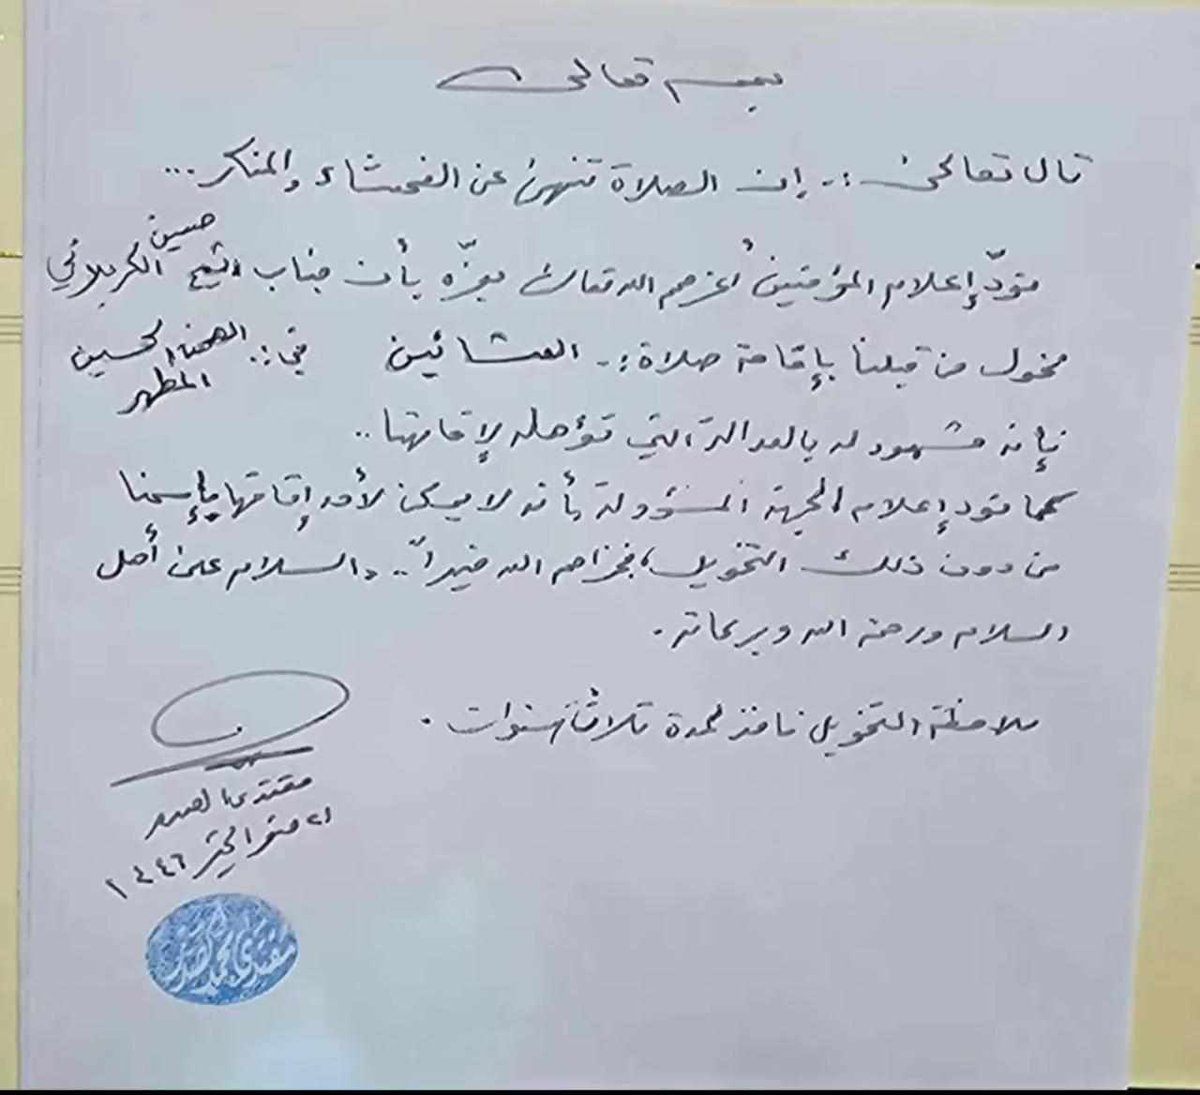 بسمه تعالى
قال تعالى :ـ إن الصلاة تنهى عن الفحشاء والمنكر ...
نودّ إعلام المؤمنين أعزهم الله تعالى بعزّه بأن جناب الشيخ حسين الكربلائي
مخول من قبلنا بإقامة صلاة :ـ العشائين في :. الصحن الحسيني المطهر
فإنه مشهود له بالعدالة التي تؤهله لإقامتها ..
كما نود إعلام الجهة المسؤولة بأنه لا يمكن لأحد إقامتها بإسمنا
من دون ذلك التخويل، فجزاهم الله خيراً .. والسلام على أهل
السلام ورحمة الله وبركاته .
ملاحظة التخويل نافذ لمدة ثلاث سنوات .
مقتدى الصدر
صفر الخير ١٤٤٦
مقتدى محمد الصدر